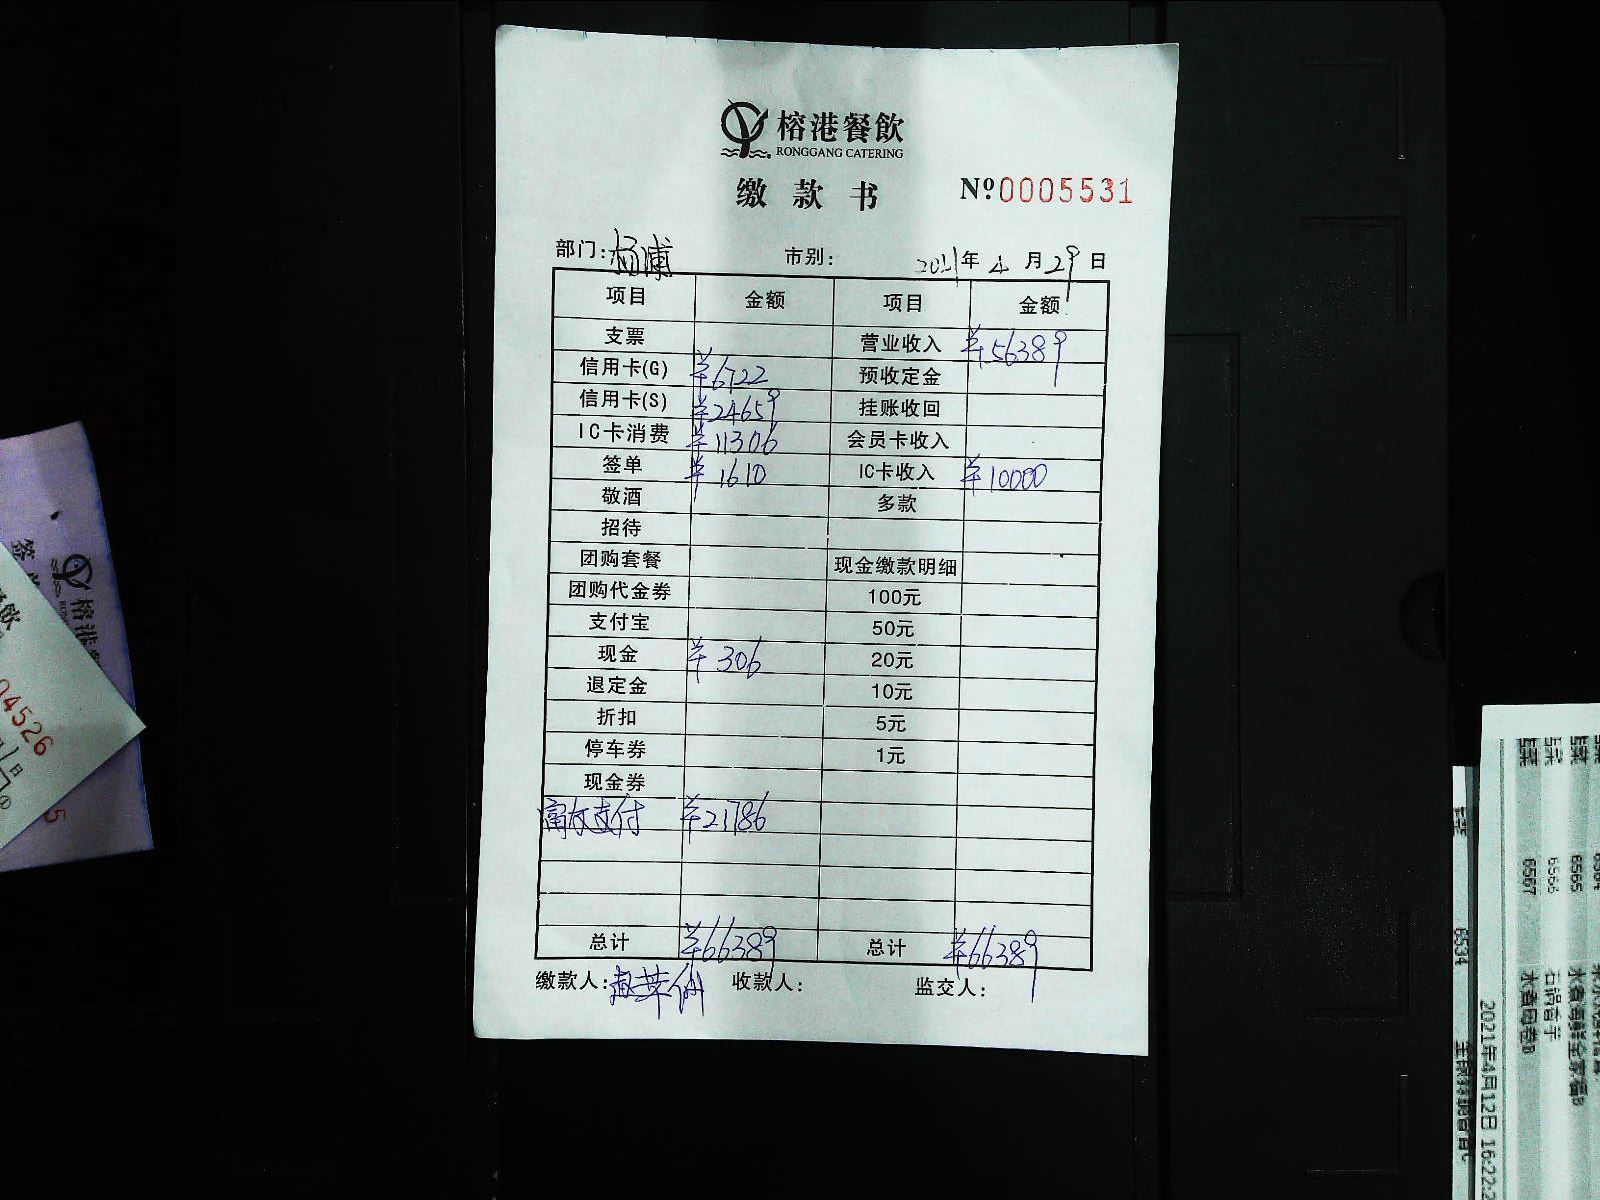 榕港餐飲
RONGGANG CATERING
缴款书 Nº0005531
部门:杨浦 市别: 2021年4月29日
项目 金额 项目 金额
支票 营业收入 ¥56389
信用卡(G) ¥6722 预收定金
信用卡(S) ¥24659 挂账收回
IC卡消费 ¥11306 会员卡收入
签单 ¥1610 IC卡收入 ¥10000
敬酒 多款
招待
团购套餐 现金缴款明细
团购代金券 100元
支付宝 50元
现金 ¥306 20元
退定金 10元
折扣 5元
停车券 1元
现金券
支付 ¥21786
总计 ¥66389 总计 ¥66389
缴款人: 收款人: 监交人:
榕港
04526
日
5
6567
6566
6565
6534
石锅香芋
2021年4月12日 16:22: